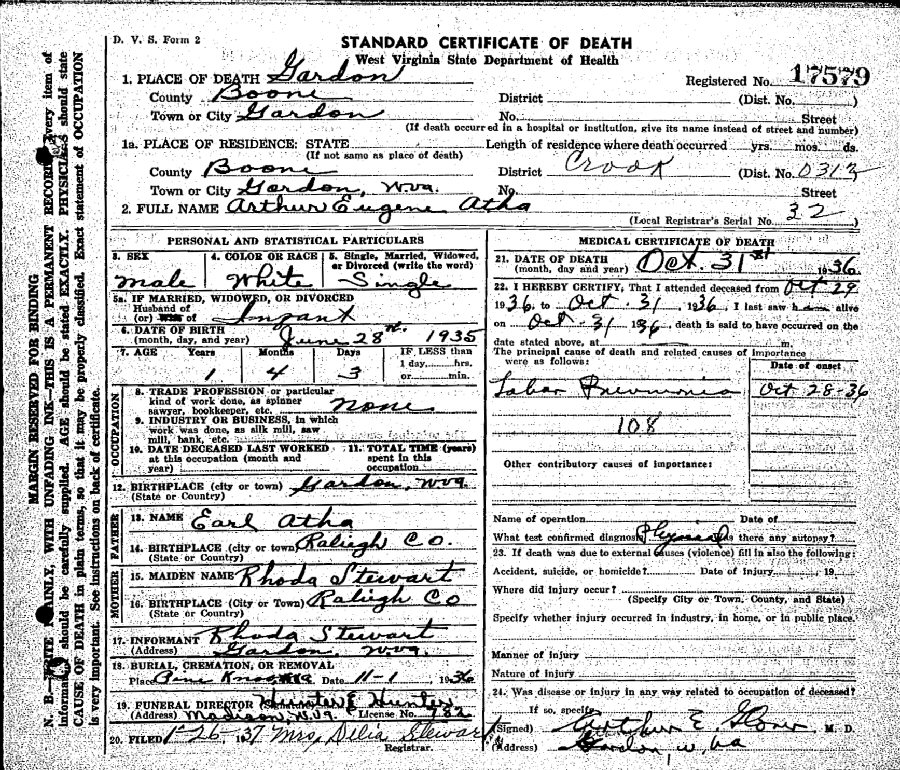 D. V. S. Form 2
STANDARD CERTIFICATE OF DEATH
West Virginia State Department of Health
Registered No. 17579
1. PLACE OF DEATH Gardon
County Boone District (Dist. No. )
Town or City Gardon No. Street
(If death occurred in a hospital or institution, give its name instead of street and number)
1a. PLACE OF RESIDENCE: STATE Length of residence where death occurred yrs. mos. ds.
(If not same as place of death)
County Boone District Crook (Dist. No. 0313
Town or City Gardon, W.va. No. Street
2. FULL NAME Arthur Eugene Atha
(Local Registrar's Serial No. 32 )
PERSONAL AND STATISTICAL PARTICULARS
3. SEX 4. COLOR OR RACE 5. Single, Married, Widowed, or Divorced (write the word)
male White Single
5a. IF MARRIED, WIDOWED, OR DIVORCED
Husband of
(or) Wife of Infant
6. DATE OF BIRTH
(month, day, and year) June 28th. 1935
7. AGE Years Months Days IF LESS than
1 4 3 1 day, hrs.
or min.
OCCUPATION
8. TRADE PROFESSION or particular
kind of work done, as spinner
sawyer, bookkeeper, etc. none
9. INDUSTRY OR BUSINESS, in which
work was done, as silk mill, saw
mill, bank, etc.
10. DATE DECEASED LAST WORKED 11. TOTAL TIME (years)
at this occupation (month and spent in this
year) occupation
12. BIRTHPLACE (city or town) Gardon, W.va.
(State or Country)
FATHER
13. NAME Earl Atha
14. BIRTHPLACE (city or town) Raleigh Co.
(State or Country)
MOTHER
15. MAIDEN NAME Rhoda Stewart
16. BIRTHPLACE (City or Town) Raleigh Co
(State or Country)
17. INFORMANT Rhoda Stewart
(Address) Gardon, W.va.
18. BURIAL, CREMATION, OR REMOVAL
Place Pine Knob Date 11-1, 1936
19. FUNERAL DIRECTOR Hunter
(Address) Madison, W.Va. License No. 782
20. FILED 1-26-1937 Mrs. Delia Stewart
Registrar.
MEDICAL CERTIFICATE OF DEATH
21. DATE OF DEATH
(month, day and year) Oct. 31st 1936.
22. I HEREBY CERTIFY, That I attended deceased from Oct 29
1936. to Oct. 31 1936. I last saw h alive
on Oct. 31 1936, death is said to have occurred on the
date stated above, at m.
The principal cause of death and related causes of importance
were as follows: Date of onset
Lobar Pneumonia Oct 28-36
108
Other contributory causes of importance:
Name of operation Date of
What test confirmed diagnosis Physical Was there any autopsy?
23. If death was due to external causes (violence) fill in also the following:
Accident, suicide, or homicide? Date of injury , 19
Where did injury occur?
(Specify City or Town, County, and State)
Specify whether injury occurred in industry, in home, or in public place.
Manner of injury
Nature of injury
24. Was disease or injury in any way related to occupation of deceased?
If so, specify
(Signed) Arthur E. Glover, M. D.
(Address) Gordon, W. Va
MARGIN RESERVED FOR BINDING
N. B.—WRITE PLAINLY, WITH UNFADING INK—THIS IS A PERMANENT RECORD. Every item of
information should be carefully supplied. AGE should be stated EXACTLY. PHYSICIANS should state
CAUSE OF DEATH in plain terms, so that it may be properly classified. Exact statement of OCCUPATION
is very important. See instructions on back of certificate.